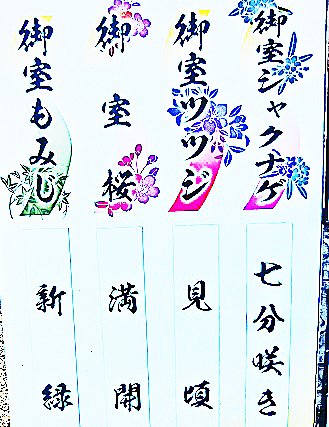 御室シャクナゲ
七分咲き
御室ツツジ
見頃
御室桜
満開
御室もみじ
新緑